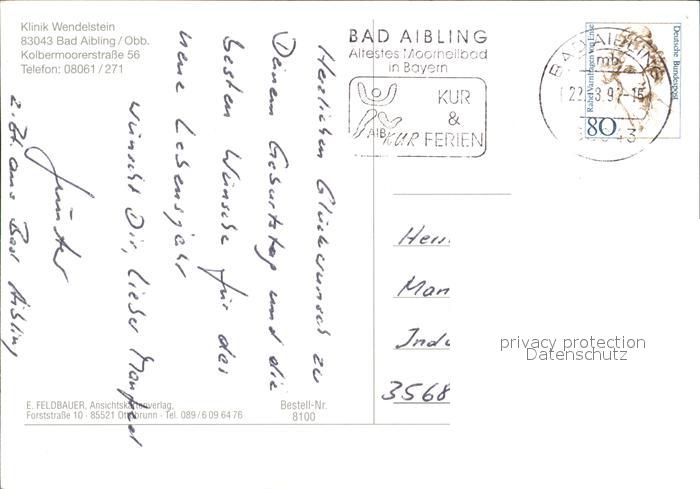 Klinik Wendelstein
83043 Bad Aibling / Obb.
Kolbermoorerstraße 56
Telefon: 08061 / 271
Herzlichen Glückwunsch zu
Deinem Geburtstag und die
besten Wünsche für das
neue Lebensjahr
wünscht Dir, lieber Manfred
Günter
z. Zt. aus Bad Aibling
BAD AIBLING
Ältestes Moorheilbad
in Bayern
KUR
&
KUR FERIEN
AIB
BAD AIBLING
mb
22. 8.9 -15
83043
Deutsche Bundespost
Rahel Varnhagen von Ense
80
Herr
Man
Indu
3568
privacy protection
Datenschutz
E. FELDBAUER, Ansichtskartenverlag,
Forststraße 10 · 85521 Ottobrunn · Tel. 089 / 6 09 64 76
Bestell-Nr.
8100